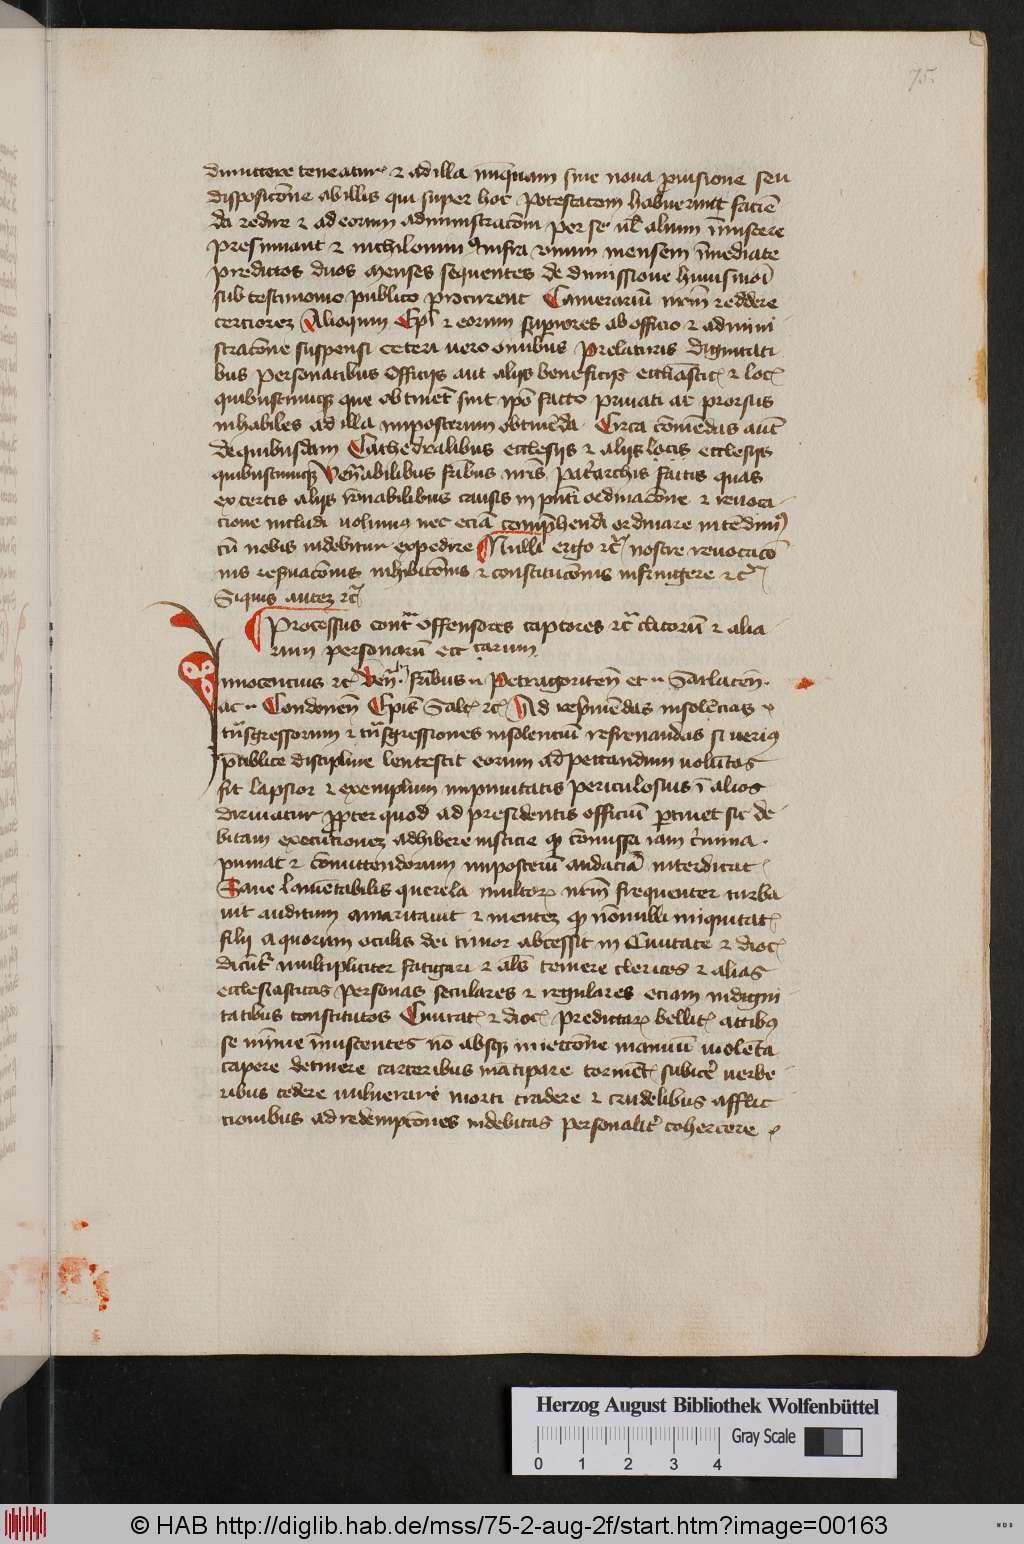 75.
dimittere teneatur et ad illa nūquam sine noua prouisione seu
disposicōne ab illis qui super hoc potestatem habuerint faciē
da redire et ad eorum administracōm per se ul alium īmiscere
presumant et nichilominus infra unum mensem īmediate
predictos duos menses sequentes de dimissione huiusmōi
sub testimonio publico procurent Camerariū nrm̄ reddere
cerciorez Alioquin Epī et eorum supiores ab officio et admini
stracōne suspensi ceteri uero om̄ibus prelaturis dignitati
bus personatibus officijs aut alijs beneficijs eccliastic et loc
quibuscumqz que obtinēt sint ipō facto priuati ac prorsus
inhabiles ad illa imposterum obtinēda Circa cōmēdas aut
de quibusdam Cathedralibus ecclesijs et alijs locis ecclesijs
quibuscumqz Venabilibus fribus nris patarchis factis quas
ex certis alijs rōnabilibus causis in pnti ordinacōne et reuoca
cione includi uolumus nec eciā comphendi ordinare intēdimus
cū nobis uidebitur expedire Nulli ergo etc nostre reuocacō
nis reseruacōnis inhibicōnis et constitucōnis infringere etc
Siquis autez etc
Processus contra offensores captores etc clicorū et alia
rum personarū ecc carum
Innocencius etc Ven fribus Petragoricen̄ et Sarlacen̄
ac Condonen̄ Epis Salt etc Ad reprimēdas insolēcias
trāsgressorum et trāsgressiones insolenciū refrenandas si uerius
publice discipline lentescit eorum ad peccandum uolūtas
fit lapsior et exemplum impunitatis periculosius ī alios
diriuatur propter quod ad presidentis officiū pertinet sic de
bitam execucionez adhibere iusticie qz cōmissa iam crimina
puniat et cōmittendorum imposterū audaciā interdicat
Sane lamētabilis querela multorum nrm̄ frequenter turba
uit auditum amaritauit et mentez qz nōnulli iniquitat
filij a quorum oculis dei timor abcessit in Ciuitate et dioc
dicūt multipliciter fatigari et als temere clericos et alias
ecclesiasticas personas seculares et regulares eciam in digni
tatibus constitutos Ciuitat et dioc predictar bellic actibus
se mīme īmiscentes nō absqz iniectōne manuū uiolēta
capere detinere carceribus mācipare tormēt subicere uerbe
ribus cedere uulnerare morti tradere et crudelibus afflic
tionibus ad redempcōnes indebitas personalit cohercere
Herzog August Bibliothek Wolfenbüttel
Gray Scale
0 1 2 3 4
© HAB http://diglib.hab.de/mss/75-2-aug-2f/start.htm?image=00163